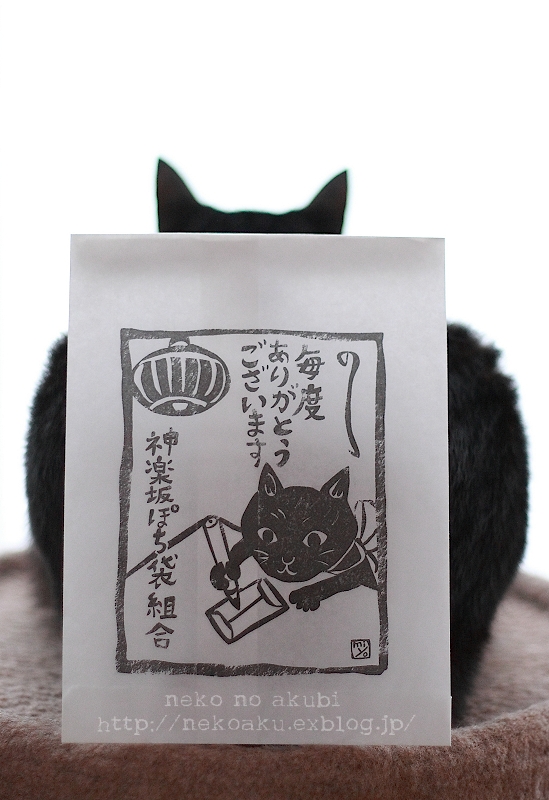 のし
毎度
ありがとう
ございます
神楽坂ぽち袋組合
mi
yo
neko no akubi
http://nekoaku.exblog.jp/